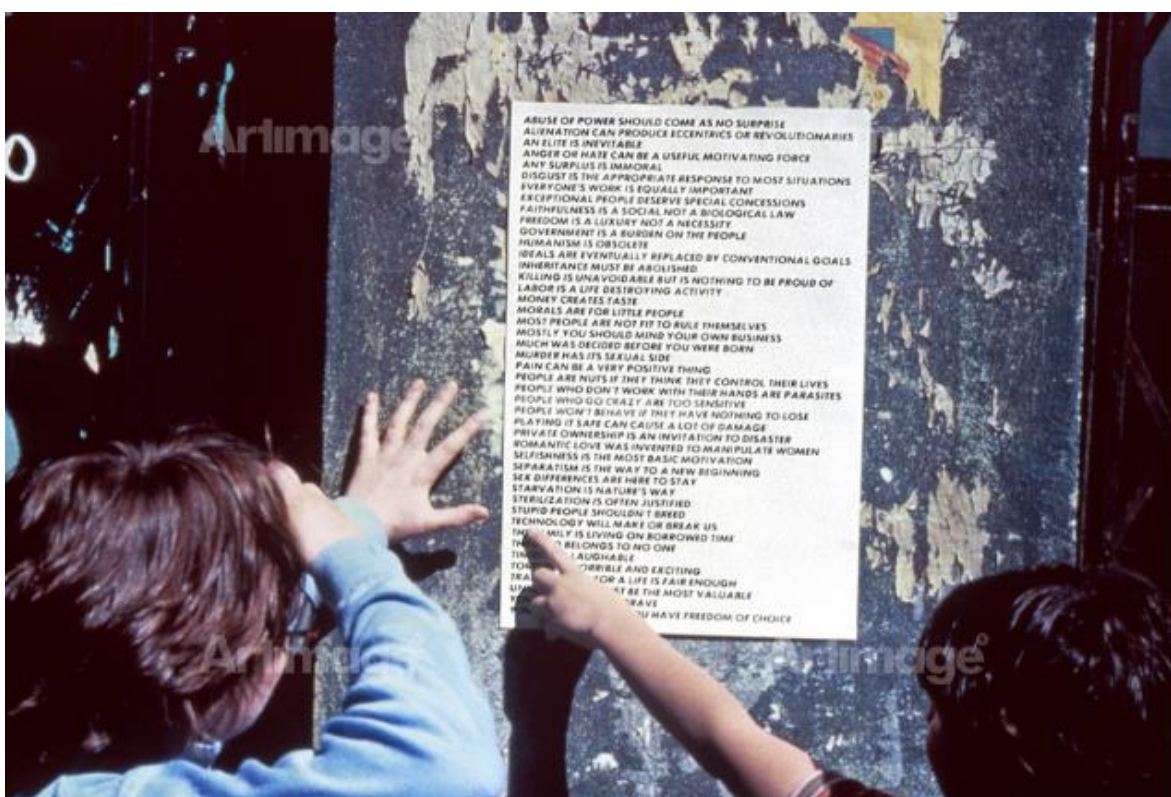 ABUSE OF POWER SHOULD COME AS NO SURPRISE
ALIENATION CAN PRODUCE ECCENTRICS OR REVOLUTIONARIES
AN ELITE IS INEVITABLE
ANGER OR HATE CAN BE A USEFUL MOTIVATING FORCE
ANY SURPLUS IS IMMORAL
DISGUST IS THE APPROPRIATE RESPONSE TO MOST SITUATIONS
EVERYONE'S WORK IS EQUALLY IMPORTANT
EXCEPTIONAL PEOPLE DESERVE SPECIAL CONCESSIONS
FAITHFULNESS IS A SOCIAL NOT A BIOLOGICAL LAW
FREEDOM IS A LUXURY NOT A NECESSITY
GOVERNMENT IS A BURDEN ON THE PEOPLE
HUMANISM IS OBSOLETE
IDEALS ARE EVENTUALLY REPLACED BY CONVENTIONAL GOALS
INHERITANCE MUST BE ABOLISHED
KILLING IS UNAVOIDABLE BUT IS NOTHING TO BE PROUD OF
LABOR IS A LIFE DESTROYING ACTIVITY
MONEY CREATES TASTE
MORALS ARE FOR LITTLE PEOPLE
MOST PEOPLE ARE NOT FIT TO RULE THEMSELVES
MOSTLY YOU SHOULD MIND YOUR OWN BUSINESS
MUCH WAS DECIDED BEFORE YOU WERE BORN
MURDER HAS ITS SEXUAL SIDE
PAIN CAN BE A VERY POSITIVE THING
PEOPLE ARE NUTS IF THEY THINK THEY CONTROL THEIR LIVES
PEOPLE WHO DON'T WORK WITH THEIR HANDS ARE PARASITES
PEOPLE WHO GO CRAZY ARE TOO SENSITIVE
PEOPLE WON'T BEHAVE IF THEY HAVE NOTHING TO LOSE
PLAYING IT SAFE CAN CAUSE A LOT OF DAMAGE
PRIVATE OWNERSHIP IS AN INVITATION TO DISASTER
ROMANTIC LOVE WAS INVENTED TO MANIPULATE WOMEN
SELFISHNESS IS THE MOST BASIC MOTIVATION
SEPARATISM IS THE WAY TO A NEW BEGINNING
SEX DIFFERENCES ARE HERE TO STAY
STARVATION IS NATURE'S WAY
STERILIZATION IS OFTEN JUSTIFIED
STUPID PEOPLE SHOULDN'T BREED
TECHNOLOGY WILL MAKE OR BREAK US
IS LIVING ON BORROWED TIME
BELONGS TO NO ONE
LAUGHABLE
HORRIBLE AND EXCITING
FOR A LIFE IS FAIR ENOUGH
BE THE MOST VALUABLE
HAVE FREEDOM OF CHOICE
Artimage
Artimage
Artimage